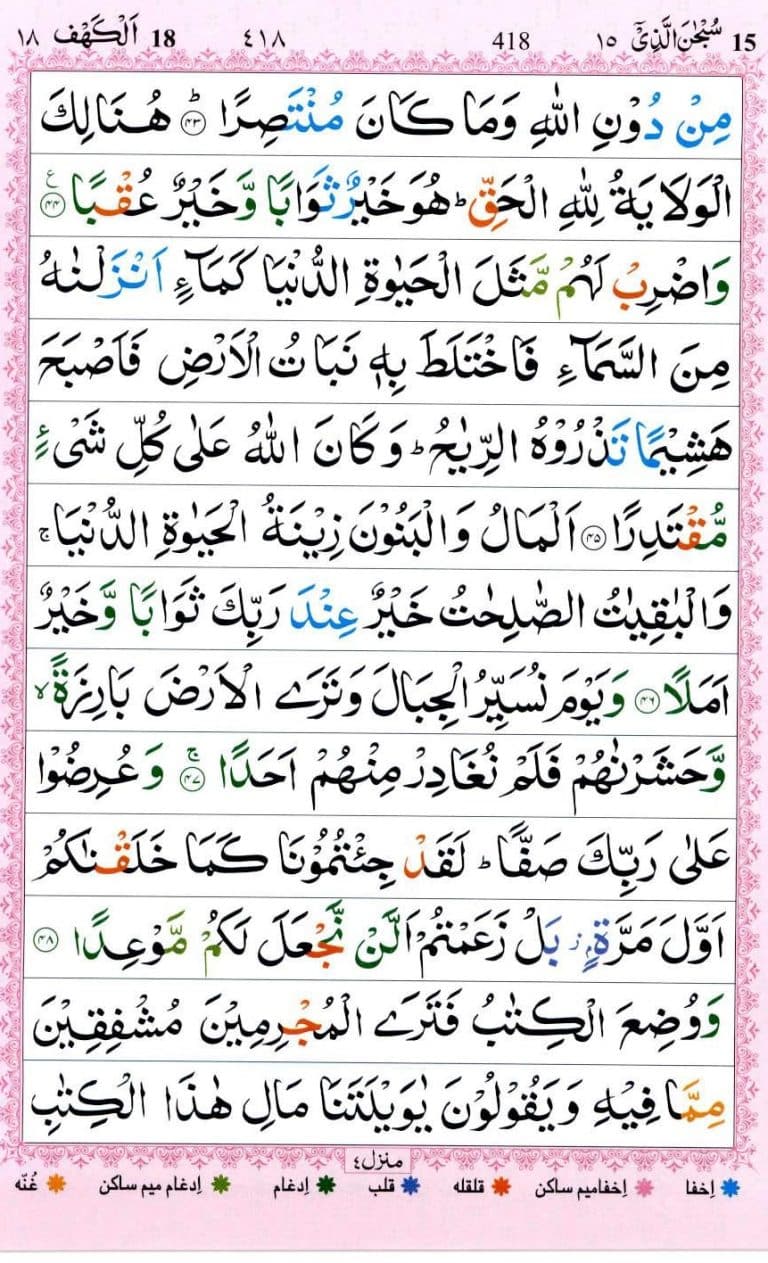 15 سُبْحٰنَ الَّذِیْۤ ١٥ 418 ٤١٨ 18 اَلْكَهْف ١٨
مِنْ دُوْنِ اللّٰهِ وَمَا كَانَ مُنْتَصِرًا ؕ ﴿٤٣﴾ هُنَالِكَ
الْوَلَايَةُ لِلّٰهِ الْحَقِّ ؕ هُوَ خَيْرٌ ثَوَابًا وَّخَيْرٌ عُقْبًا ﴿٤٤﴾ ع
وَاضْرِبْ لَهُمْ مَّثَلَ الْحَيٰوةِ الدُّنْيَا كَمَآءٍ اَنْزَلْنٰهُ
مِنَ السَّمَآءِ فَاخْتَلَطَ بِهٖ نَبَاتُ الْاَرْضِ فَاَصْبَحَ
هَشِيْمًا تَذْرُوْهُ الرِّيٰحُ ؕ وَكَانَ اللّٰهُ عَلٰى كُلِّ شَیْءٍ
مُّقْتَدِرًا ﴿٤٥﴾ اَلْمَالُ وَالْبَنُوْنَ زِيْنَةُ الْحَيٰوةِ الدُّنْيَا ۚ
وَالْبٰقِيٰتُ الصّٰلِحٰتُ خَيْرٌ عِنْدَ رَبِّكَ ثَوَابًا وَّخَيْرٌ
اَمَلًا ﴿٤٦﴾ وَيَوْمَ نُسَيِّرُ الْجِبَالَ وَتَرَى الْاَرْضَ بَارِزَةً ۙ
وَّحَشَرْنٰهُمْ فَلَمْ نُغَادِرْ مِنْهُمْ اَحَدًا ۚ ﴿٤٧﴾ وَعُرِضُوْا
عَلٰى رَبِّكَ صَفًّا ؕ لَقَدْ جِئْتُمُوْنَا كَمَا خَلَقْنٰكُمْ
اَوَّلَ مَرَّةٍۭ ؗ بَلْ زَعَمْتُمْ اَلَّنْ نَّجْعَلَ لَكُمْ مَّوْعِدًا ﴿٤٨﴾
وَوُضِعَ الْكِتٰبُ فَتَرَى الْمُجْرِمِيْنَ مُشْفِقِيْنَ
مِمَّا فِيْهِ وَيَقُوْلُوْنَ يٰوَيْلَتَنَا مَالِ هٰذَا الْكِتٰبِ
منزل٤
اِخفا اِخفامیم ساکن قلقله قلب اِدغام اِدغام میم ساکن غُنّه